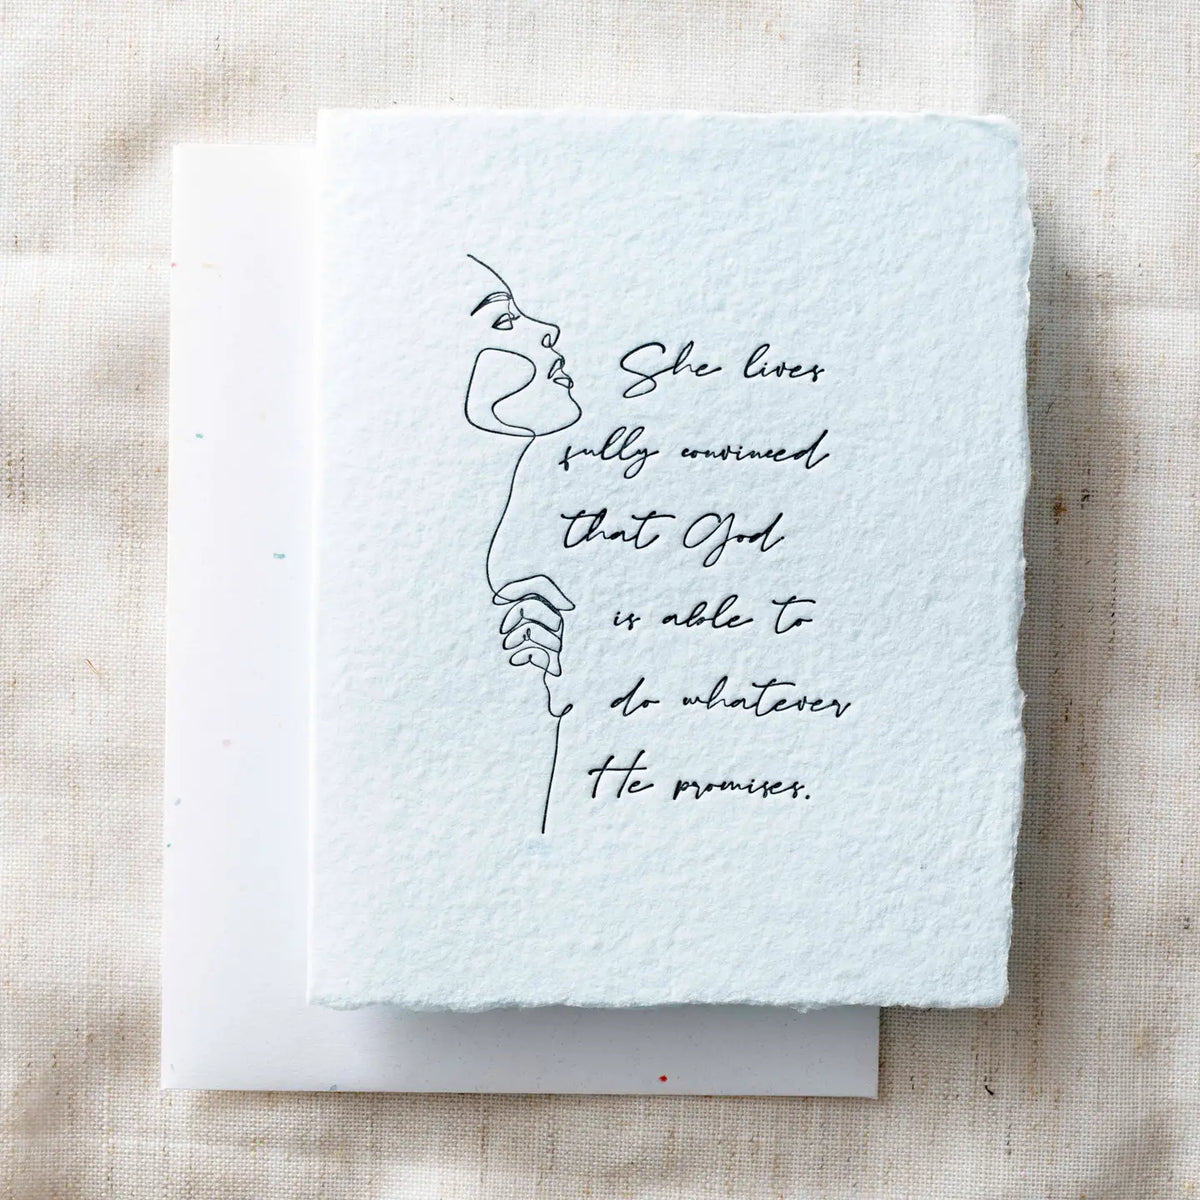 She lives
fully convinced
that God
is able to
do whatever
He promises.